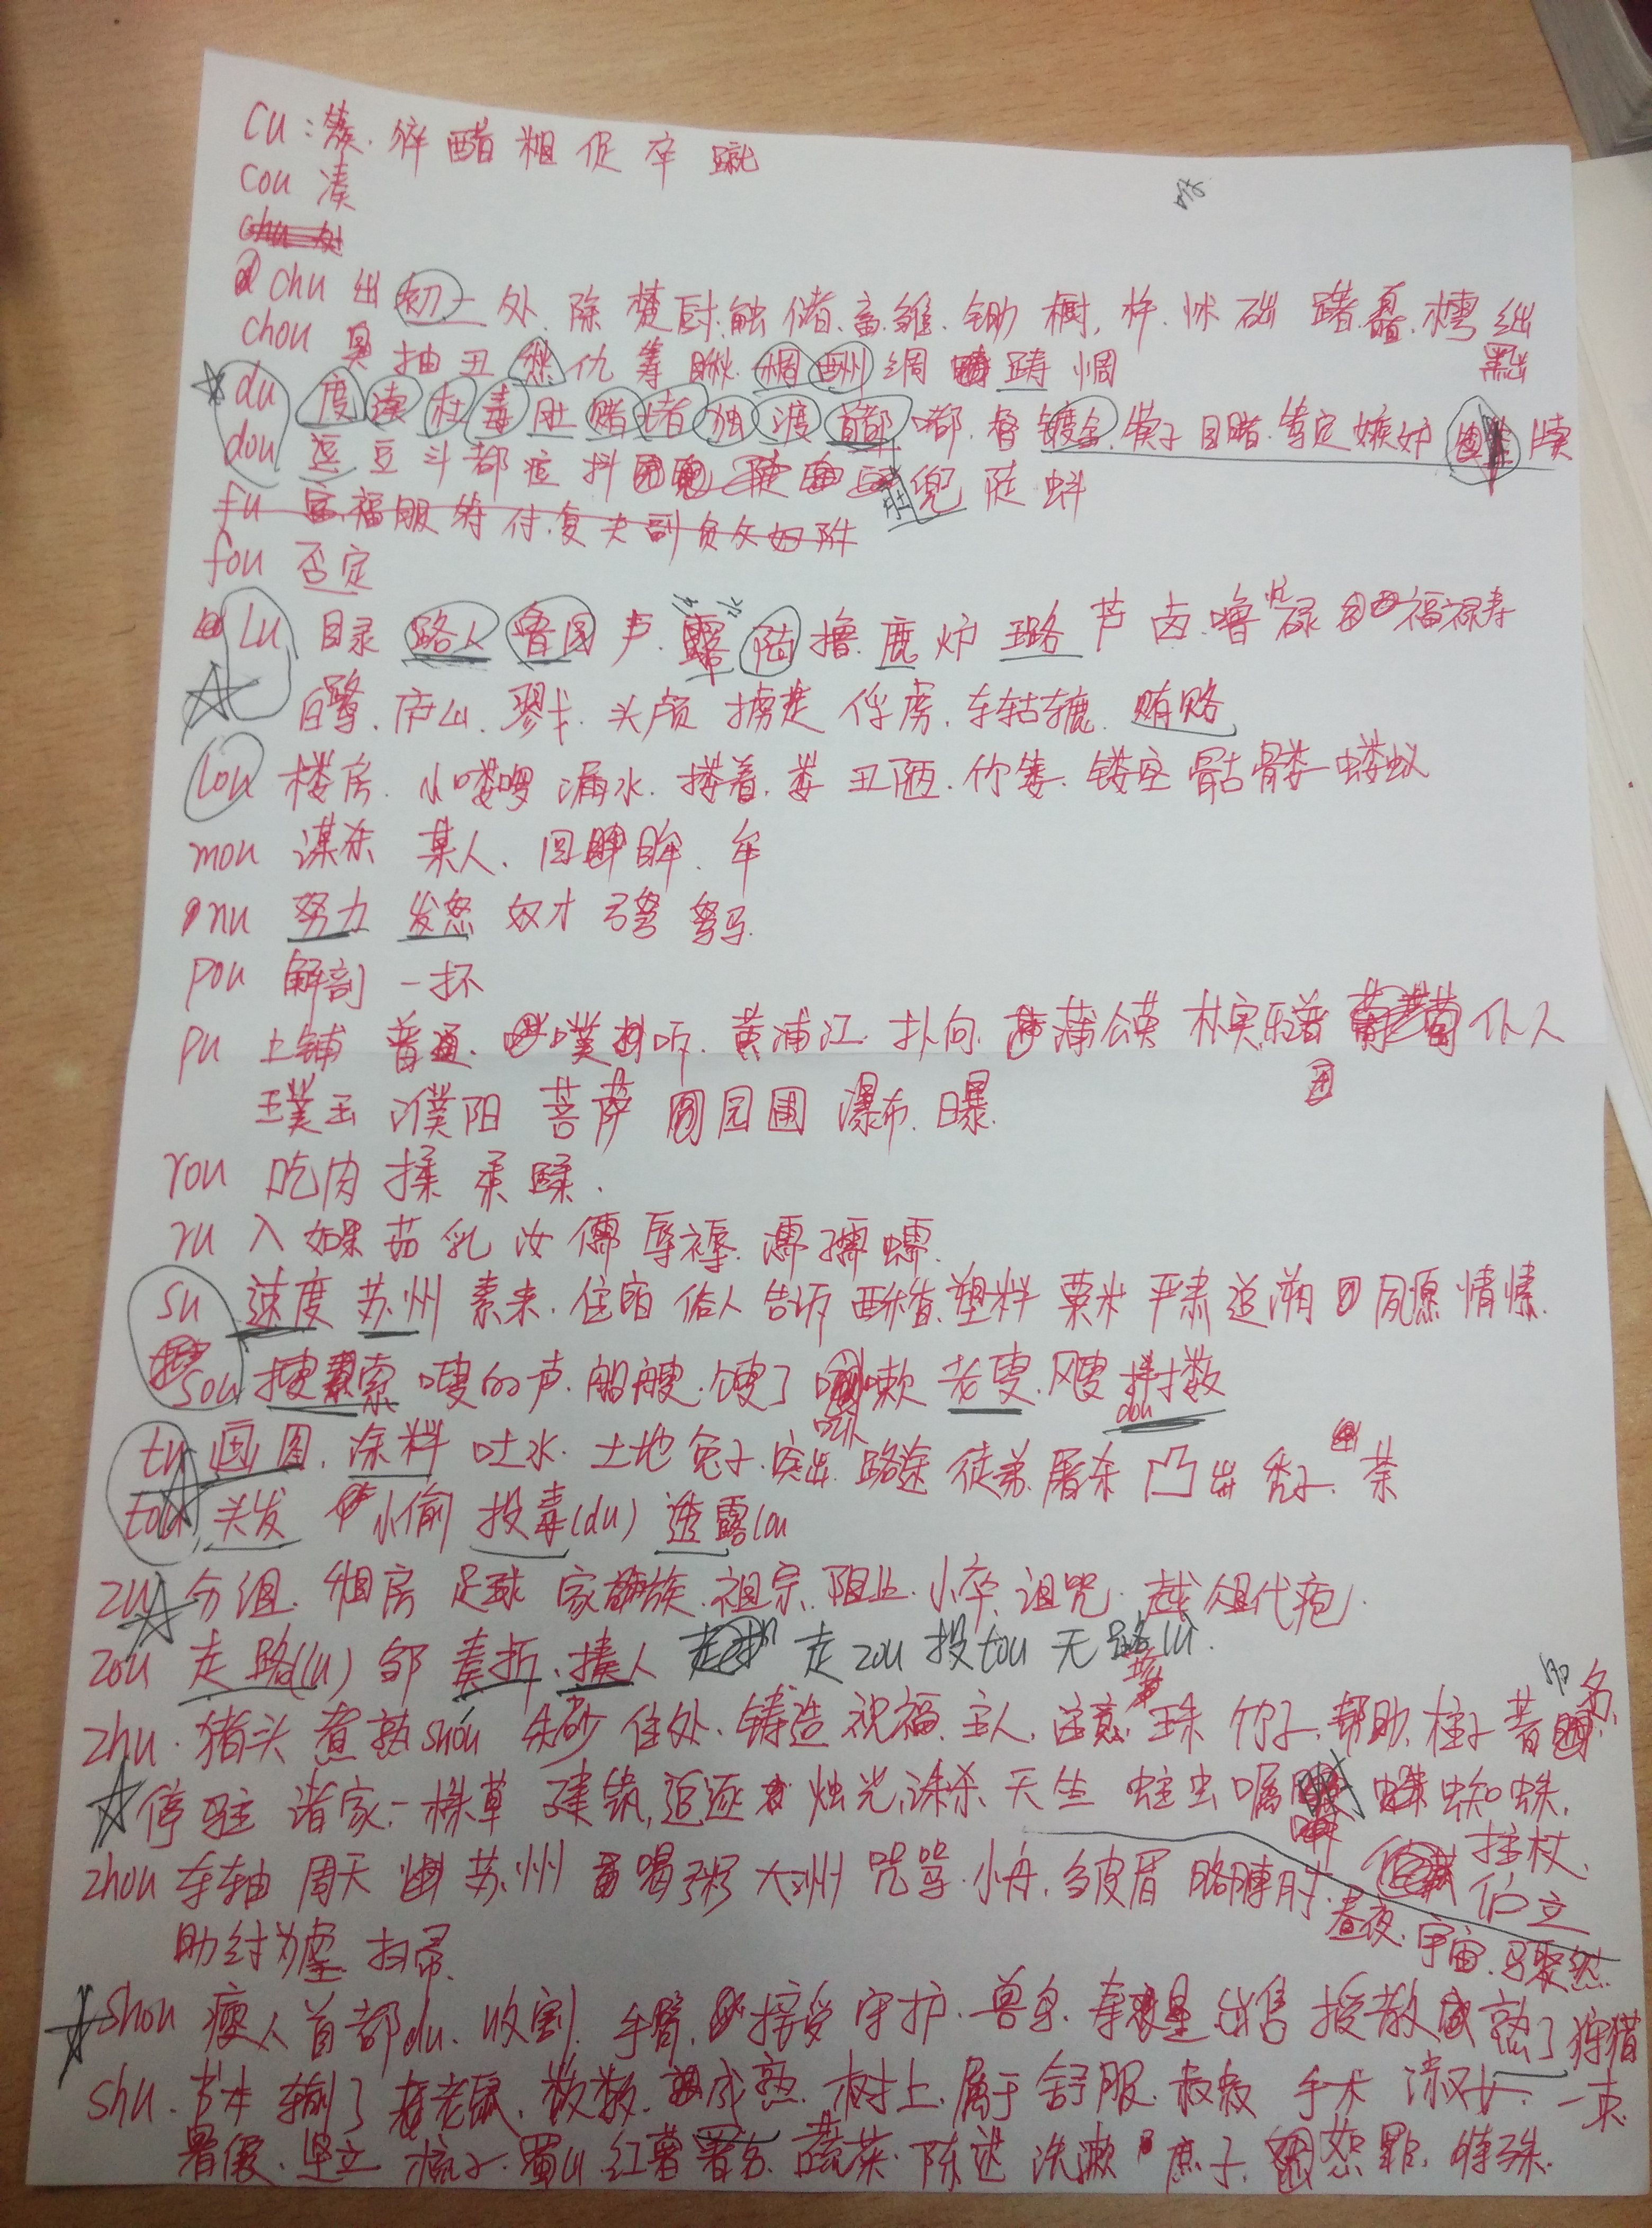 cu：蔟.猝 醋 粗 促 卒 蹴
cou 凑
chu 出 初一 处 除 楚 厨.触 储.畜.雏.锄 橱,杵.怵 础 躇.矗.樗 绌
黜
chou 臭 抽 丑 愁 仇 筹 瞅.惆 酬 绸 踌 惆
du 度 读 杜 毒 肚 赌 堵 独 渡 首都 嘟.督 镀金.犊子 目睹.笃定 嫉妒 牍
dou 逗 豆 斗 都 痘 抖 兜 陡 蚪
fu 富.福 服 符 付.复 夫 副 负 父 妇 附
fou 否定
Lu 目录 路人 鲁国 卢.露 陆 撸.鹿 炉 璐 芦 卤.噜 禄 福禄寿
白鹭.庐山.戮.头颅 掳走 俘虏.车轱辘.贿赂
lou 楼房.小喽啰 漏水.搂着.娄 丑陋.竹篓.镂空 骷髅 蝼蚁
mou 谋杀 某人.回眸.牟
nu 努力 发怒 奴才 弓弩 驽马.
pou 解剖 一抔
pu 上铺 普通.噗呲.黄浦江.扑向.蒲公英 朴实.乐谱 葡萄 仆人
璞玉 濮阳 菩萨 园圃 瀑布.曝.
rou 吃肉 揉 柔 蹂.
ru 入 如果 茹 乳 汝 儒 辱 褥.濡 孺 蠕.
su 速度 苏州 素来.住宿 俗人 告诉 酥 塑料 粟米 严肃 追溯 夙愿 情愫.
sou 搜索 嗖的声.船艘.馊了 嗽 老叟.飕 抖擞
dou
tu 画图.涂料 吐水.土地 兔子.突出.路途 徒弟.屠杀 凸出 秃子.荼
tou 头发 小偷 投毒(du) 透露lou
zu 分组.租房 足球 家族.祖宗.阻止.小卒.诅咒.越俎代庖.
zou 走路(lu) 邹 奏折.揍人 走zou 投tou 无路lu.
zhu.猪头 煮熟shou 朱砂 住处.铸造 祝福.主人.注意.珠 竹子.帮助.柱子 著名.
停驻 诸家.一株草 建筑.追逐 烛光.诛杀.天生 蛀虫 嘱 蜘蛛.
拄杖.
伫立
zhou 车轴 周天 苏州 喝粥 大洲 咒骂.小舟.皱眉 胳膊肘.昼夜.宇宙.骤然.
助纣为虐 扫帚.
shou 瘦人 首都du.收割.手臂.接受 守护.兽.寿星 出售 授 成熟了 狩猎
shu.书本 输了 老鼠.数数.成熟.树上.属于 舒服.叔叔 手术 淑女.一束.
暑假.竖立 梳子.蜀山.红薯 署名.蔬菜.陈述 洗漱 庶子.恕罪.特殊.